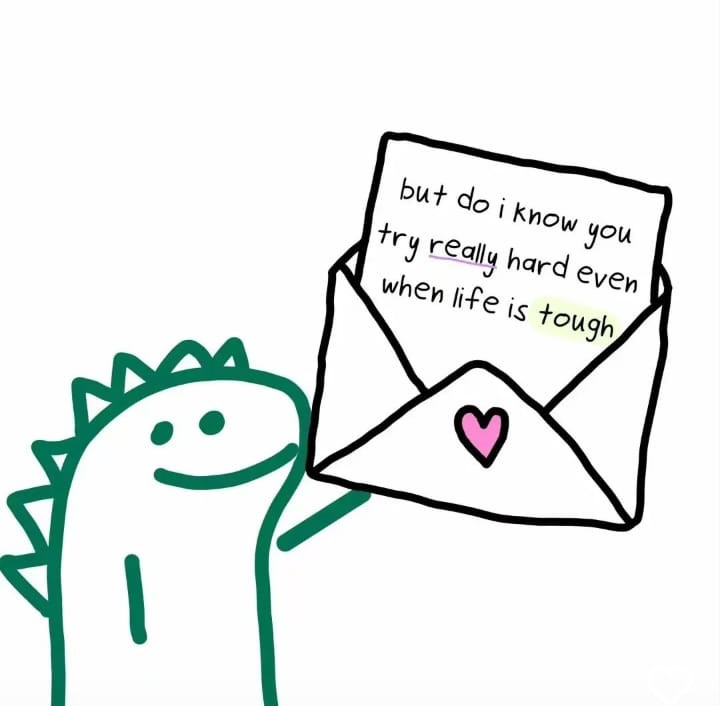 but do i know you
try really hard even
when life is tough